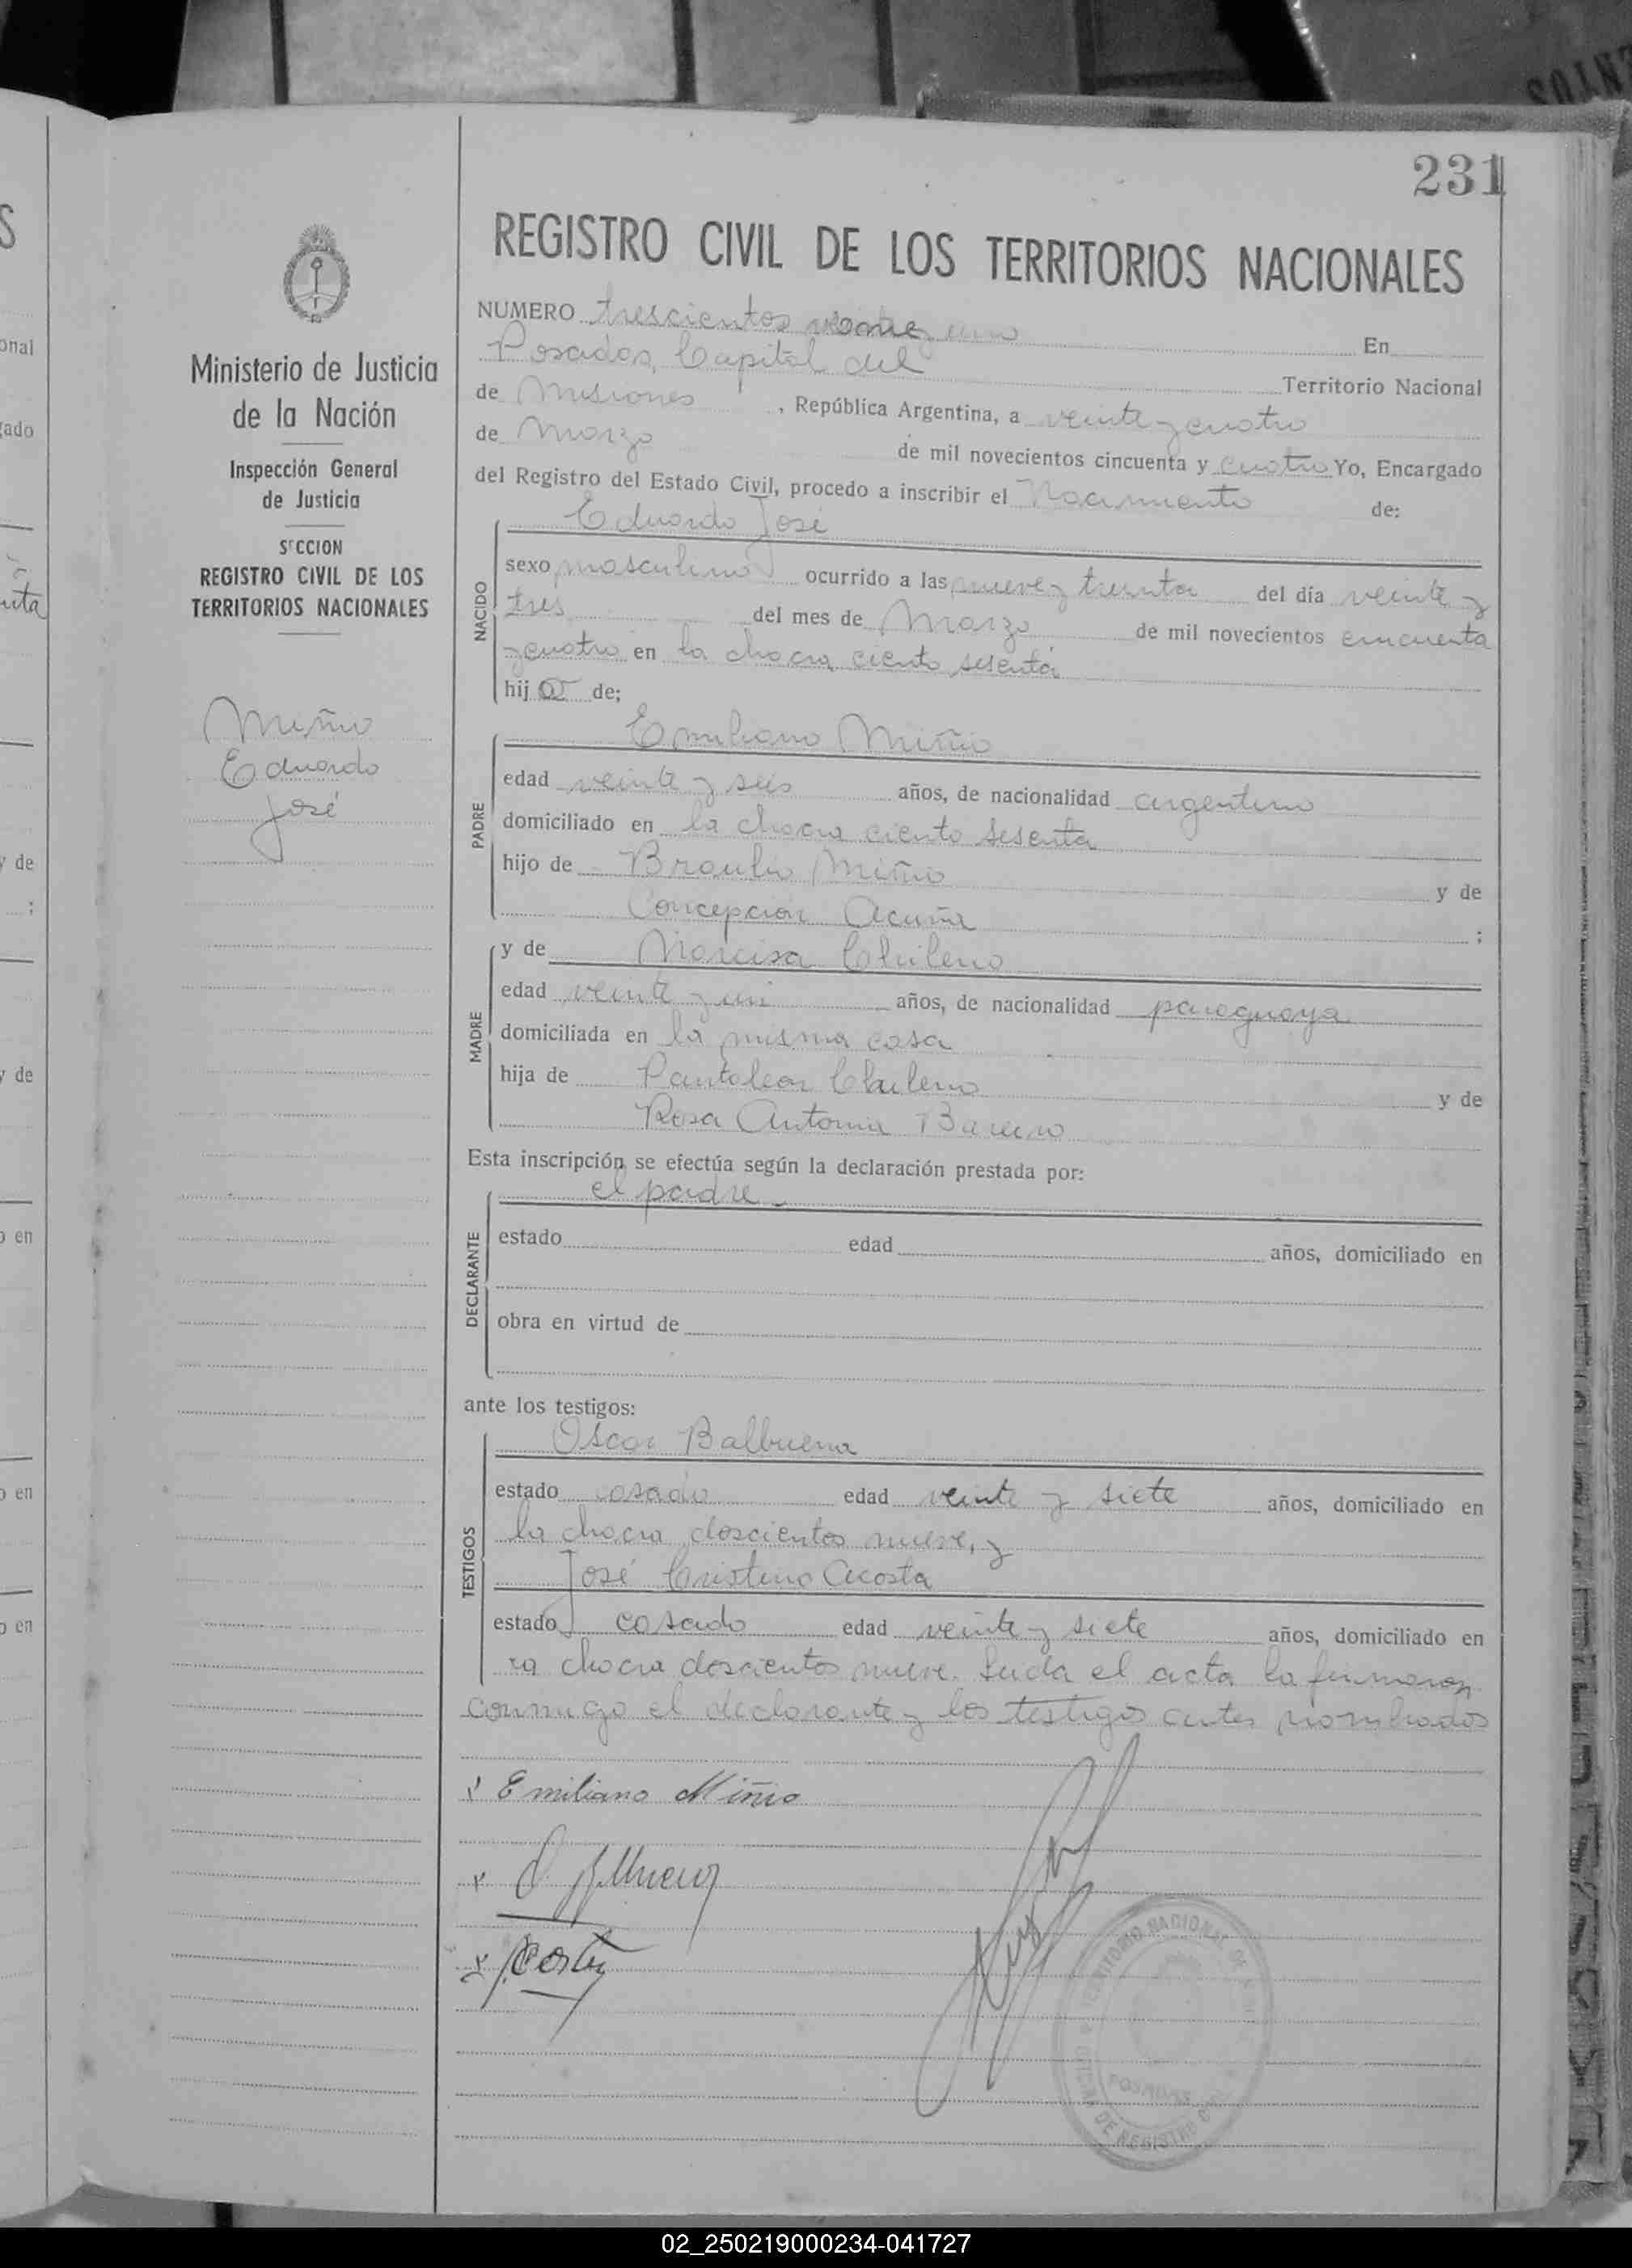 231
REGISTRO CIVIL DE LOS TERRITORIOS NACIONALES
NUMERO trescientos y uno
En
Posadas, Capital del Territorio Nacional
de Misiones, República Argentina, a veinte y cuatro
de Marzo de mil novecientos cincuenta y cuatro Yo, Encargado
del Registro del Estado Civil, procedo a inscribir el Nacimiento de:
Eduardo José
NACIDO
sexo masculino ocurrido a las nueve y treinta del día veinte y
tres del mes de Marzo de mil novecientos cincuenta
y cuatro en la chacra ciento sesenta
hijo de;
PADRE
Emiliano Miño
edad veinte y seis años, de nacionalidad argentino
domiciliado en la chacra ciento sesenta
hijo de Braulio Miño y de
Concepción Acuña ;
MADRE
y de Narcisa Chileno
edad veinte y un años, de nacionalidad paraguaya
domiciliada en la misma casa
hija de Pantaleon Chileno y de
Rosa Antonia
Esta inscripción se efectúa según la declaración prestada por:
el padre
DECLARANTE
estado edad años, domiciliado en
obra en virtud de
ante los testigos:
TESTIGOS
Oscar Balbuena
estado casado edad veinte y siete años, domiciliado en
la chacra doscientos nueve, y
José Cristino Acosta
estado casado edad veinte y siete años, domiciliado en
la chacra doscientos nueve. Leida el acta la firmaron
conmigo el declarante y los testigos antes nombrados
Emiliano Miño
Ministerio de Justicia
de la Nación
Inspección General
de Justicia
SECCION
REGISTRO CIVIL DE LOS
TERRITORIOS NACIONALES
Miño
Eduardo
José
02_250219000234-041727